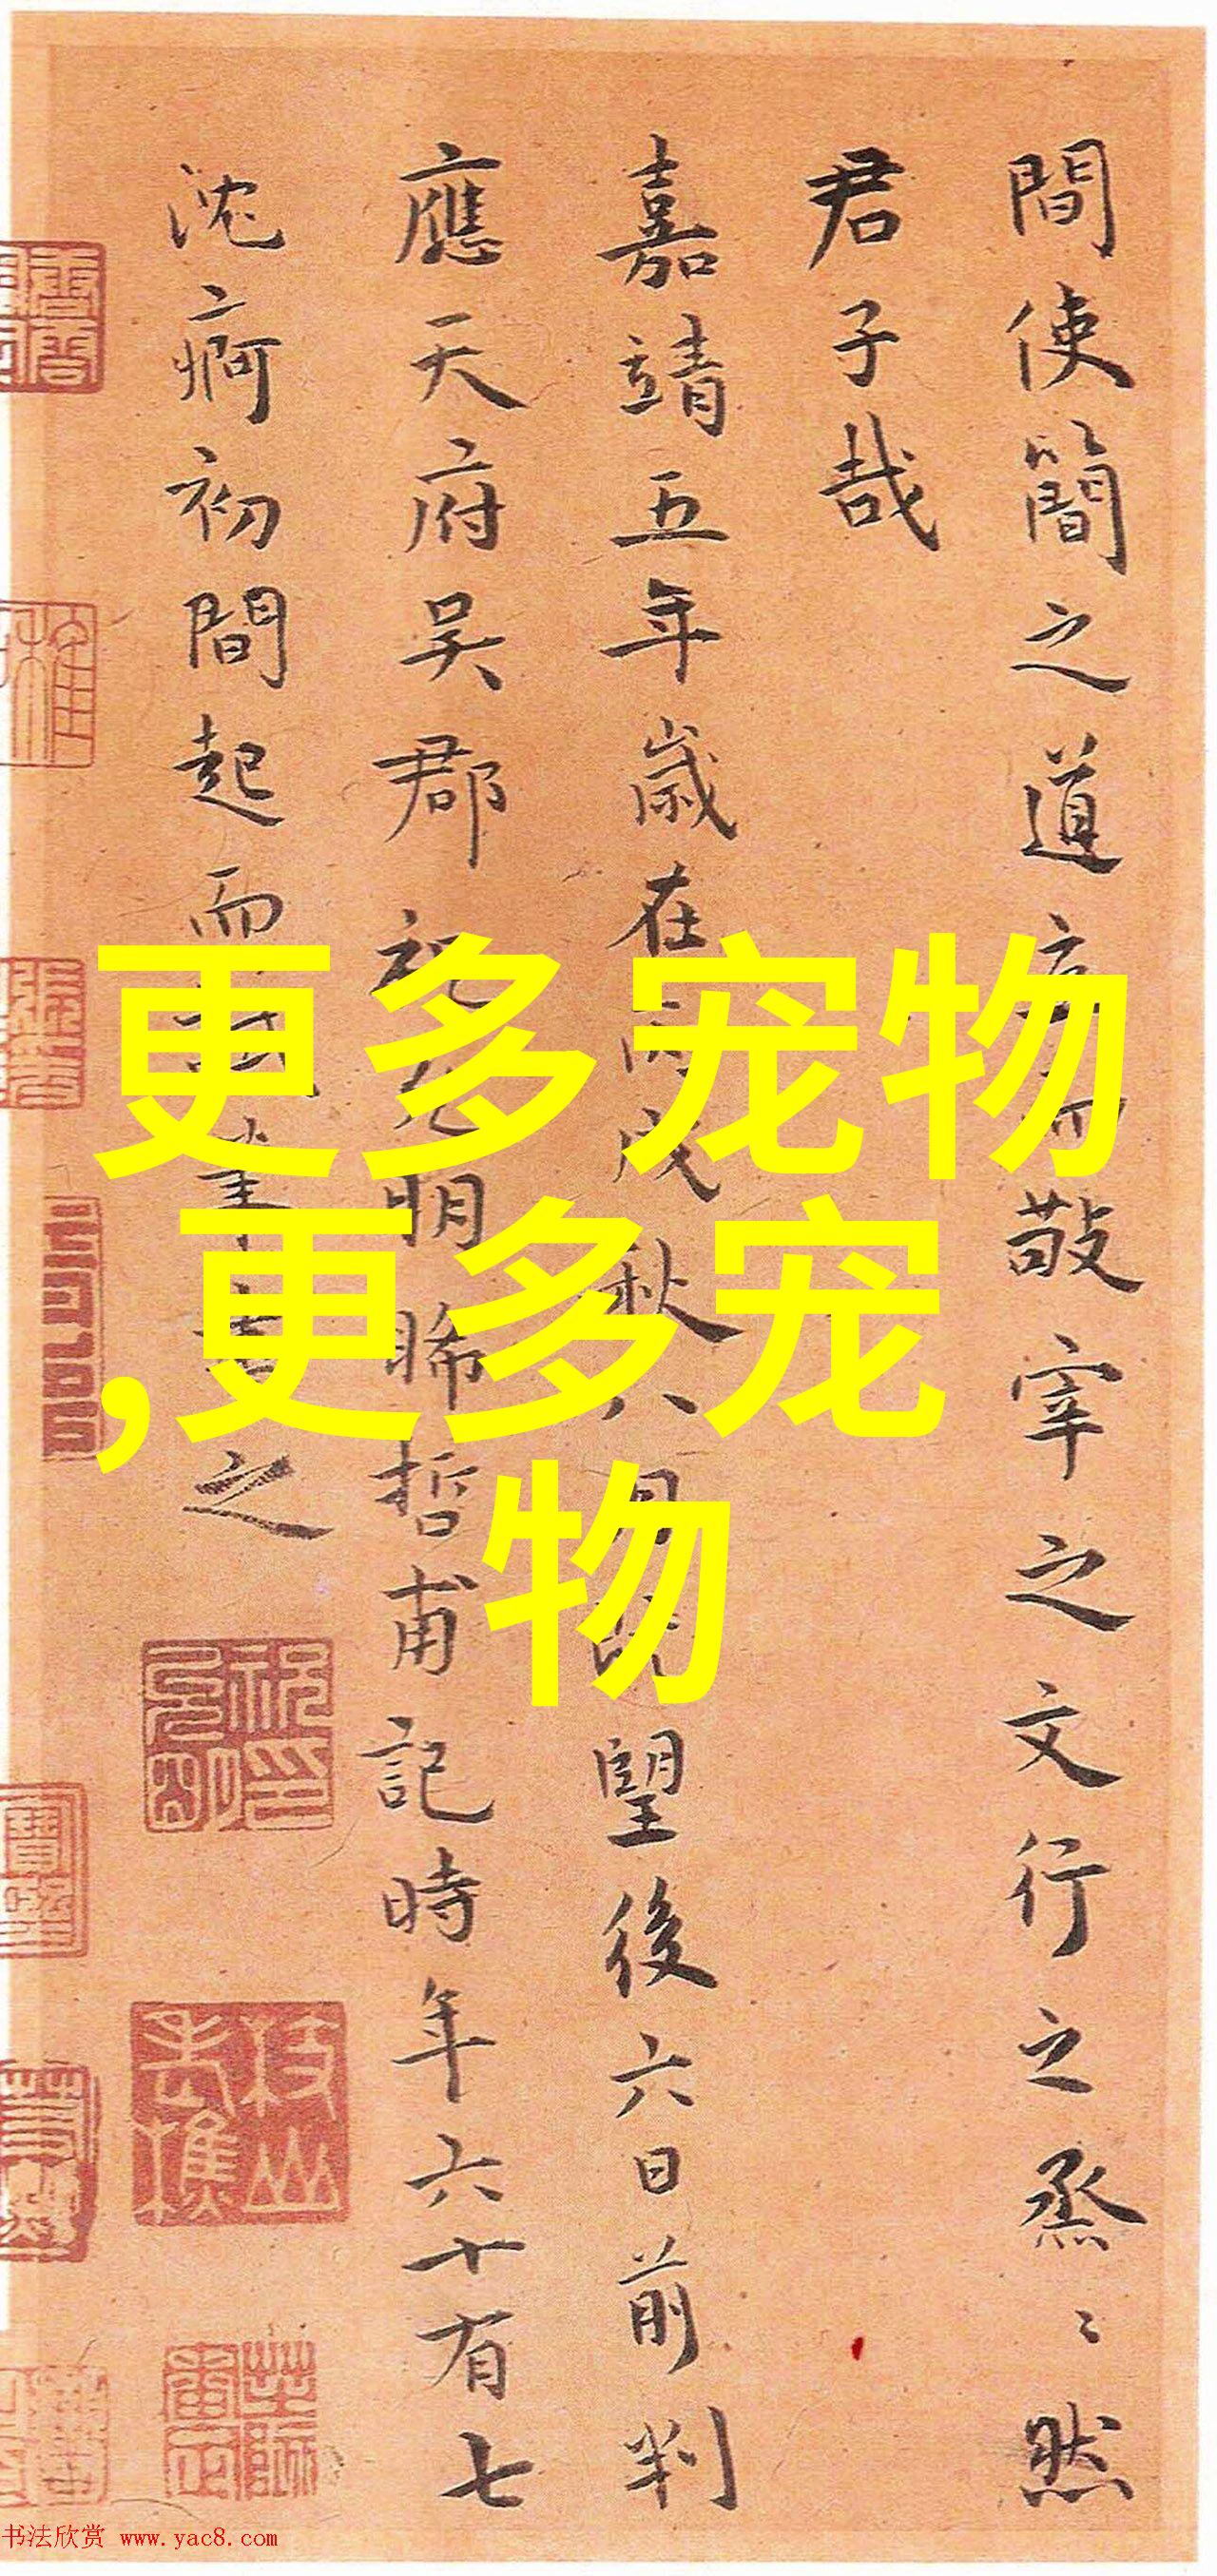 間使簡之道而敬宰之文行之烝〻然
君子哉
嘉靖五年歲在丙戌秋八月既望後六日前判
應天府吳郡祝允明晞哲甫記時年六十有七
沈痾初間起而書之
更多宠物
,更多宠
物
书法欣赏 www.yac8.com